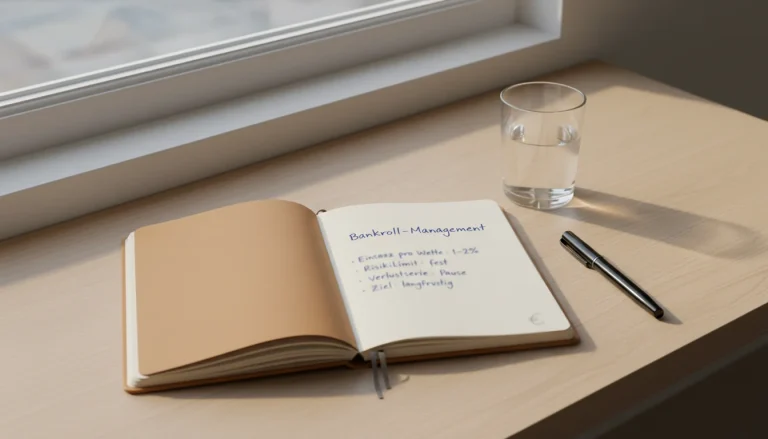 Bankroll-Management
· Einsatz pro Wette: 1-2%
· Risik-Limit: fest
· Verlustserie: Pause
· Ziel: langfristig
€